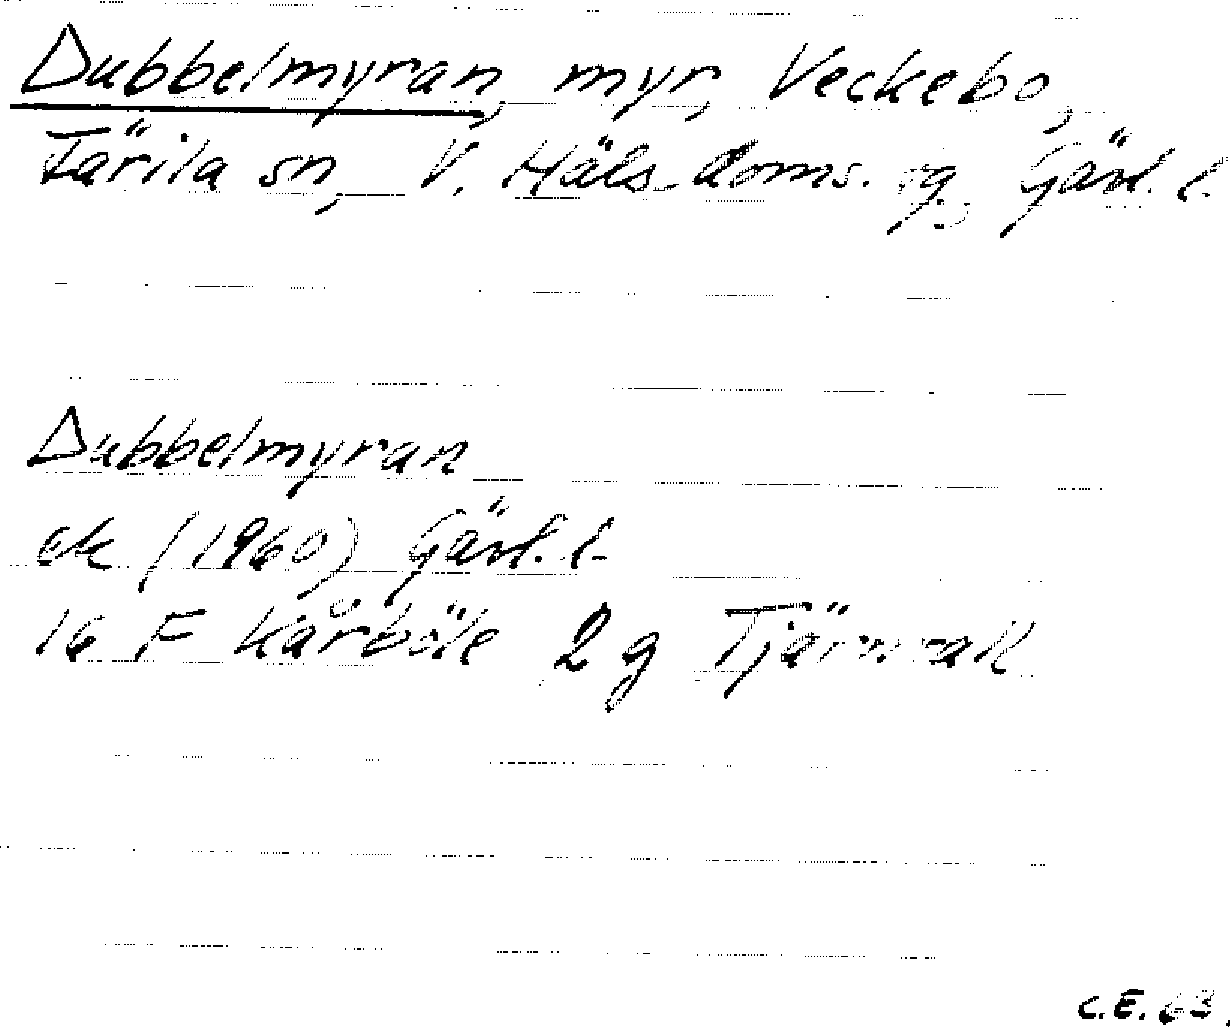 Dubbelmyran, myr, Veckebo,
Färila sn, V. Häls. doms. sg, Gävl. l.
Dubbelmyran
ek (1960) Gävl. l.
16 F Kårböle 2 g Tjärnvall
C.E. 63.